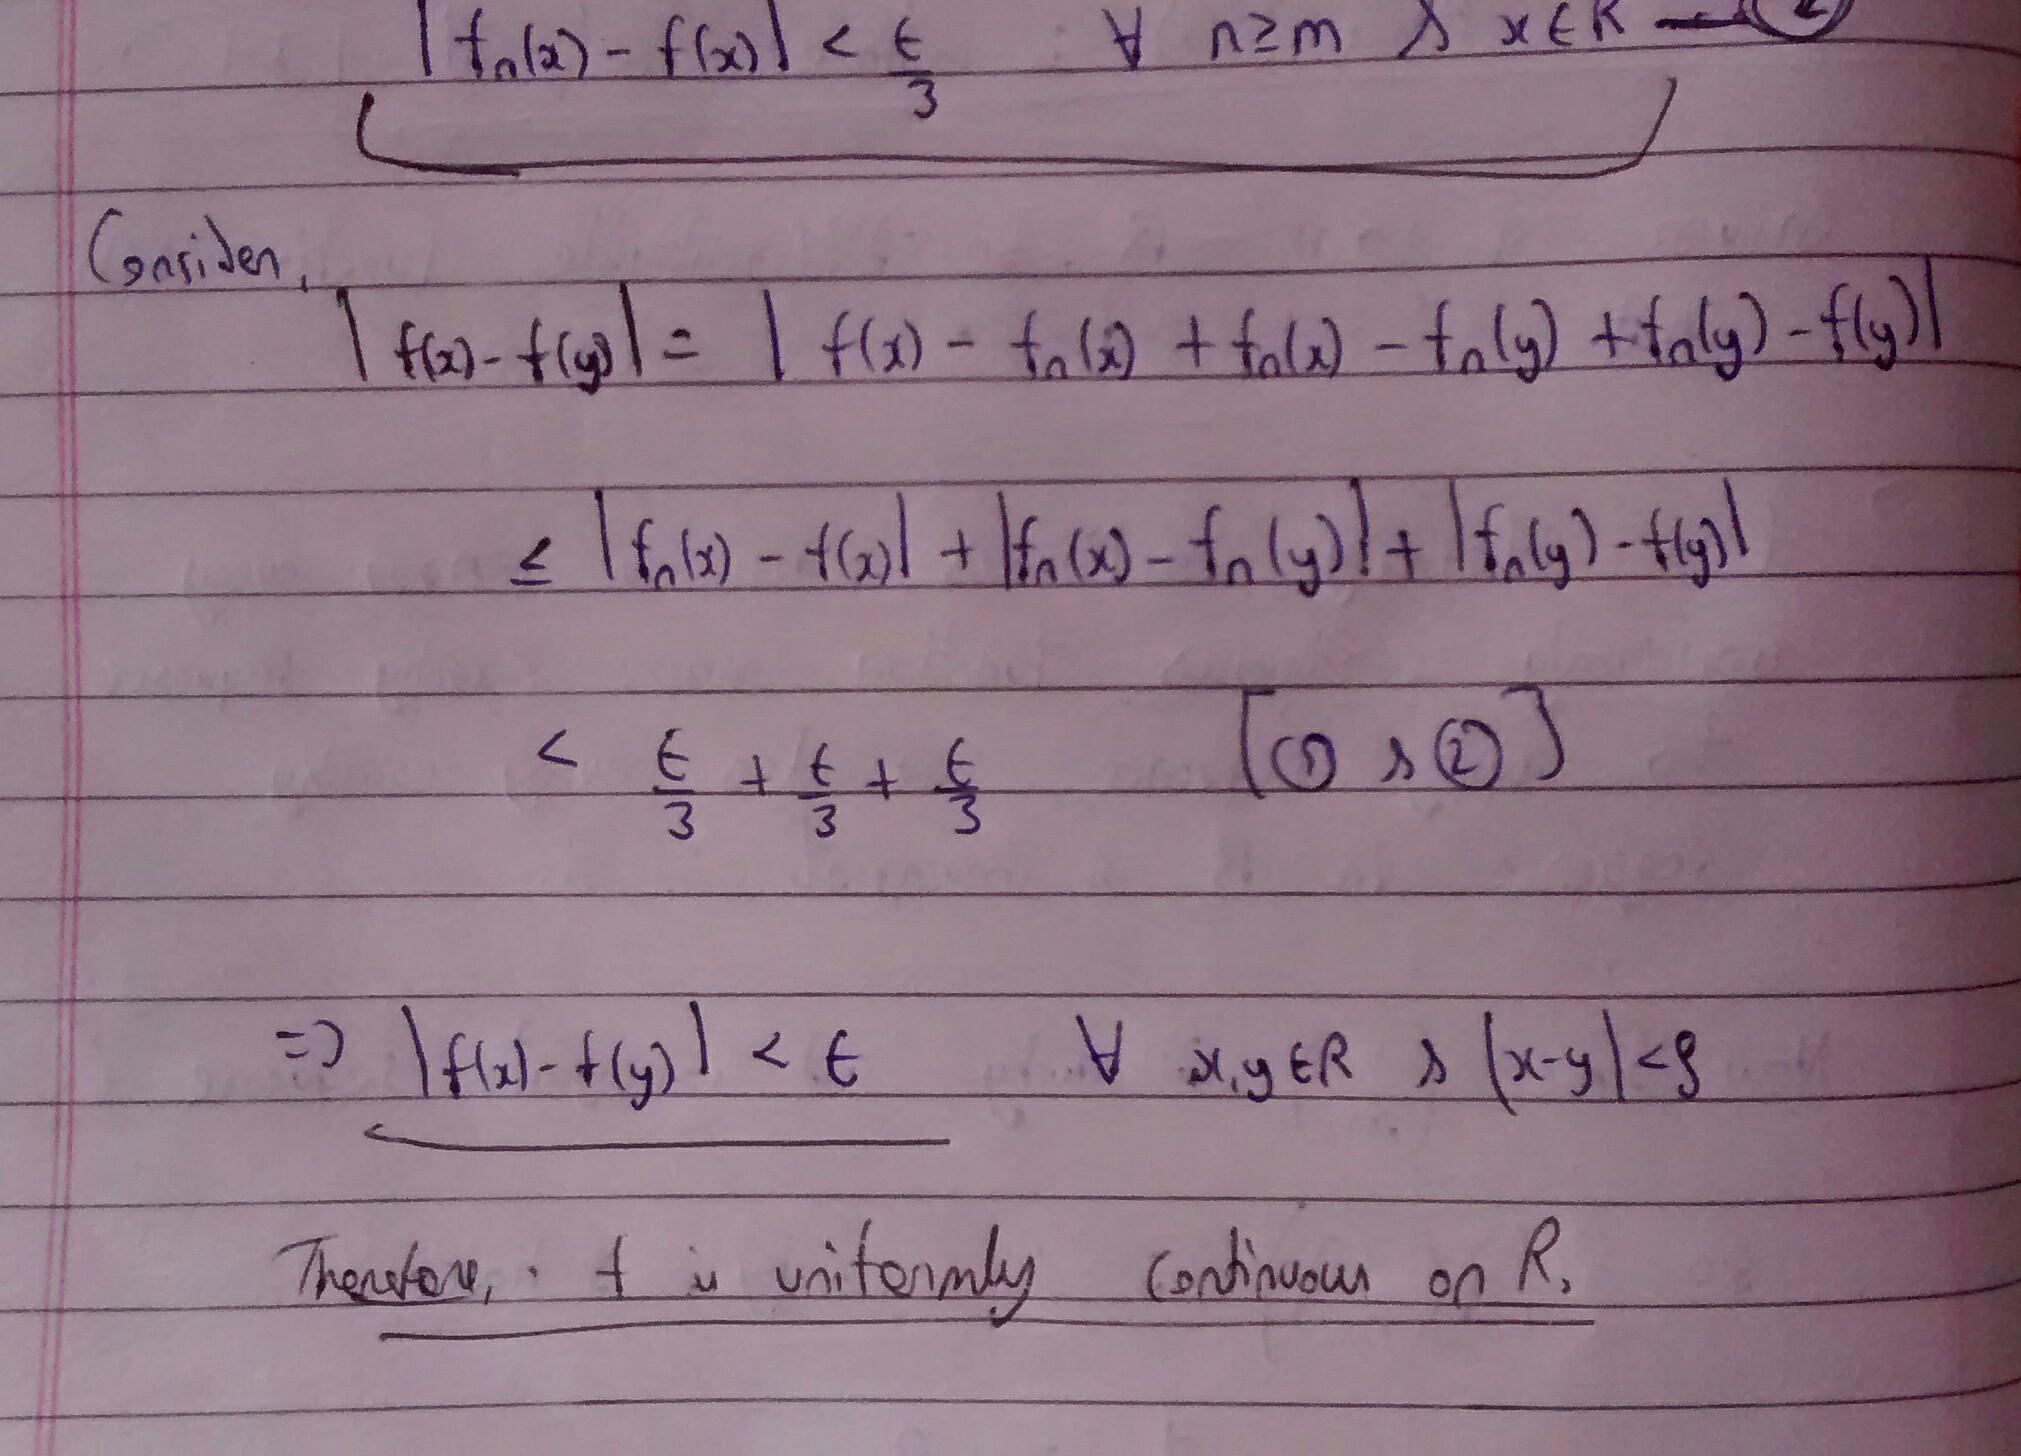 |fn(x) - f(x)| < ε/3 ∀ n≥m & x∈R — ②
Consider,
|f(x) - f(y)| = |f(x) - fn(x) + fn(x) - fn(y) + fn(y) - f(y)|
≤ |fn(x) - f(x)| + |fn(x) - fn(y)| + |fn(y) - f(y)|
< ε/3 + ε/3 + ε/3 [① & ②]
=> |f(x) - f(y)| < ε ∀ x,y∈R & |x-y|<δ
Therefore, f is uniformly continuous on R.